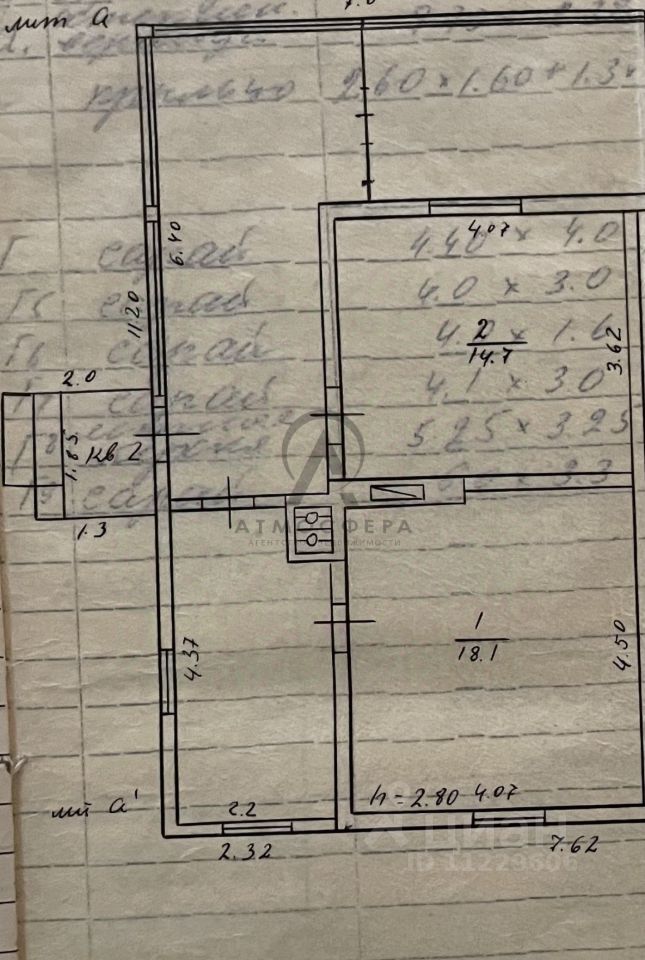 лит а
крыльцо 2.60 × 1.60 + 1.3
6.40
11.20
4.07
Г сарай 4.40 × 4.0
сарай 4.0 × 3.0
2
14.7
3.62
сарай
2.0
сарай 4.1 × 3.0
кухня 5.25 × 3.25
1.85
кв 2
сарай
1.3
АТМОСФЕРА
АГЕНТСТВО НЕДВИЖИМОСТИ
1
18.1
4.50
4.37
h = 2.80 4.07
лит а'
2.2
2.32
7.62
циан